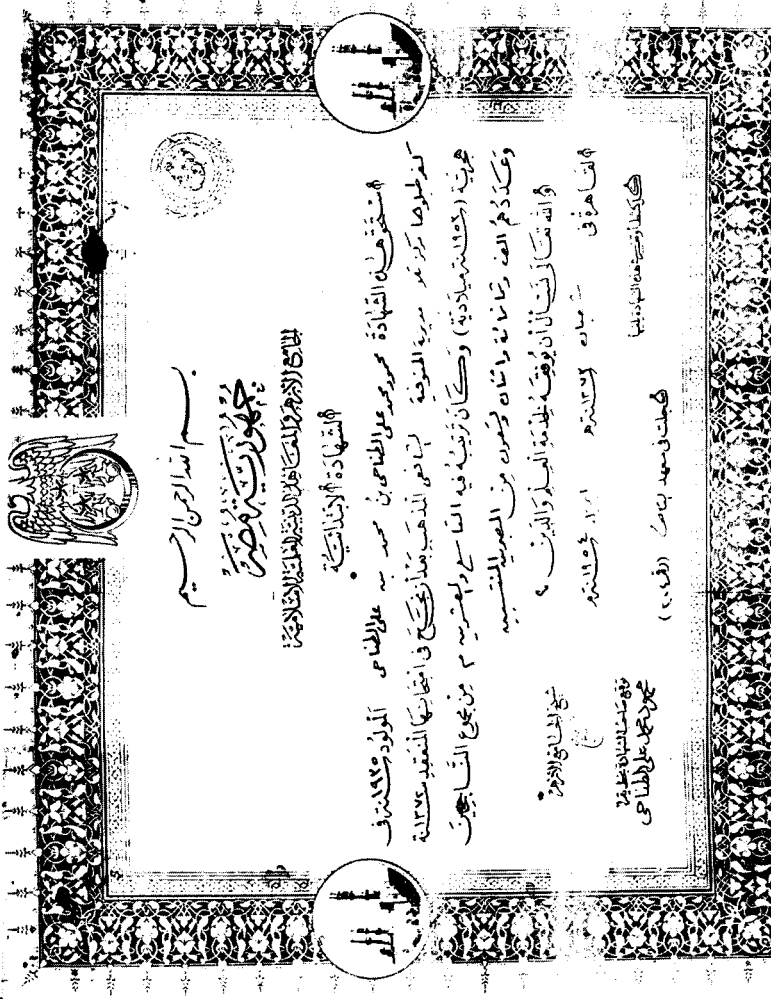 بسم الله الرحمن الرحيم
جمهورية مصر
الجامع الأزهر والمعاهد الدينية العلمية الإسلامية
الشهادة الابتدائية
استحق هذه الشهادة محمود محمد على الطناحى بن محمد على الطناحى المولود سنة ١٩٣٥ فى
كفر طبلوها مركز تلا مديرية المنوفية الشافعى المذهب لأنه نجح فى امتحانها المنعقد سنة ١٣٧٢
هجرية (١٩٥٣ ميلادية) وكان ترتيبه فيه التاسع والعشرين من مجموع الناجحين
وعددهم ألف وثمانمائة واثنان وتسعون من المصريين المنتسبين
والله تعالى نسأل أن يوفقه لخدمة العلم والدين
القاهرة فى شعبان سنة ١٣٧٢ هـ سنة ١٩٥٣ م
شيخ الجامع الأزهر
سجلت فى معهد
وقع صاحب الشهادة بخطه
محمود محمد على الطناحى